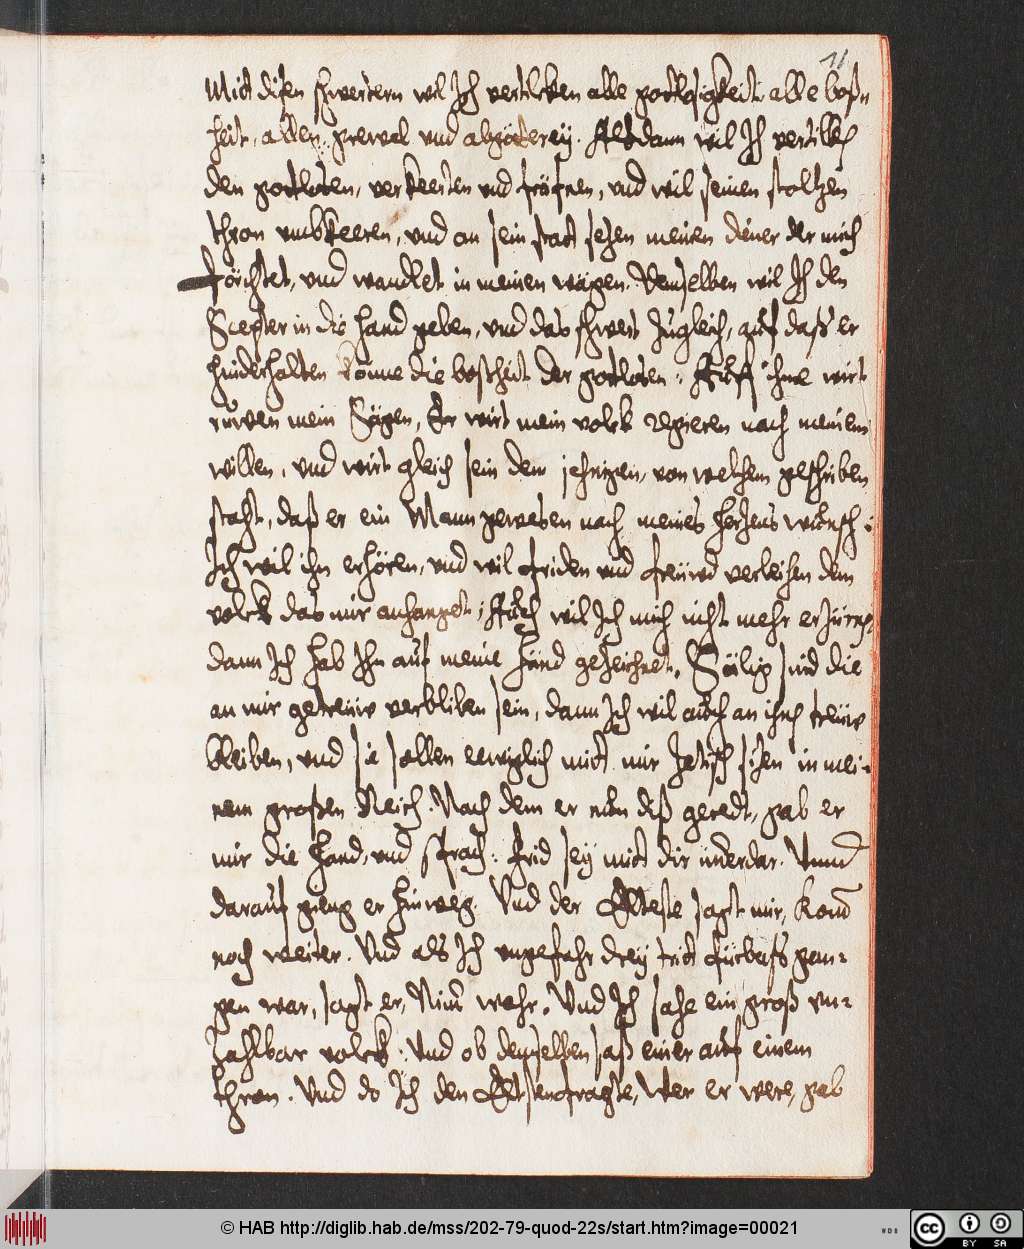 11
Mit disen schwertern wil Ich vertilcken alle gotlosigkeit, alle boß-
heit, allen grewel vnd abgötterey. Alsdann wil Ich vertillken
den gotlosen, verkeerten vnd fräfnen, vnd wil seinen stoltzen
thron vmbkeeren, vnd an sein statt setzen meinen diener der mich
förchtet, vnd wandlet in meinen wägen. Demselben wil Ich den
Scepter in die hand geben, vnd das schwert zugleich, auf daß er
hinderhalten könne die boscheit der gotlosen. Auf ihme wirt
ruwen mein Sägen, Er wirt mein volck regieren nach meinem
willen, vnd wirt gleich sein dem jehnigen, von welchem geschriben
staht, daß er ein Mann gewesen nach meines hertzens wunsch.
Ich wil ihn erhören, vnd wil friden vnd freüwd verleihen dem
volck das mir anhanget; Auch wil Ich mich nicht mehr erzürnen,
dann Ich hab Ihn auf meine händ gezeichnet. Sälig sind die
an mir getreüw verbliben sein, dann Ich wil auch an ihnen treüw
bleiben, vnd sie sollen eewiglich mit mir zetisch sitzen in mei-
nem großen Reich. Nach dem er nun diß geredt, gab er
mir die hand, vnd sprach: Frid sey mit dir imerdar. Vnnd
darauf gieng er hinweg. Vnd der Elteste sagt mir, Kom
noch weiter. Vnd als Ich vngefahr drey trit fürbaß gan-
gen war, sagt er, Nim wahr. Vnd Ich sahe ein groß vn-
zahlbar volck. Vnd ob demselben saß einer auf einem
thron. Vnd do Ich den Eltesten fragte, Wer er were, gab
© HAB http://diglib.hab.de/mss/202-79-quod-22s/start.htm?image=00021
WDB
cc
BY SA